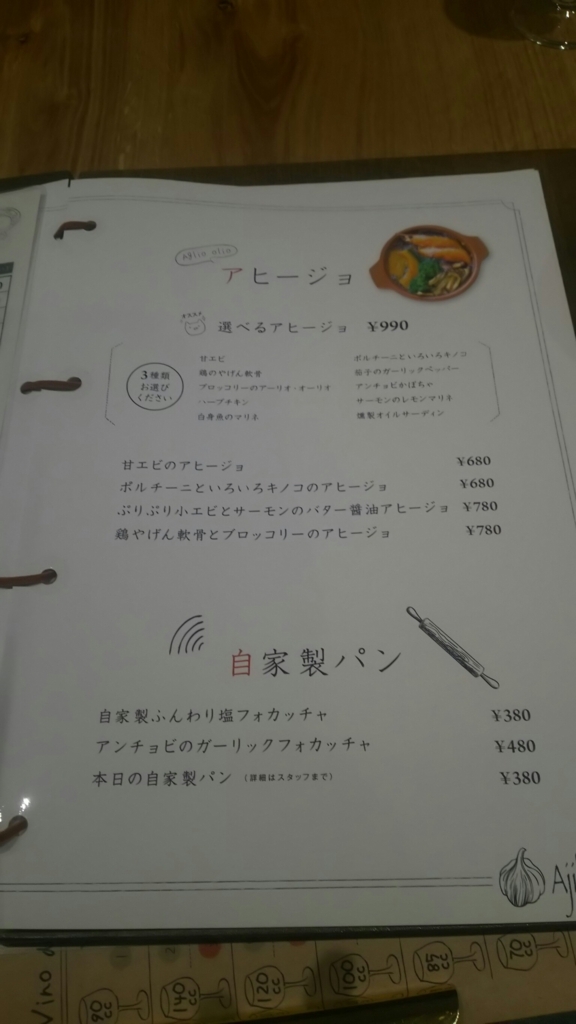 aglio olio
アヒージョ
選べるアヒージョ ¥990
3種類
お選び
ください
甘エビ
鶏のやげん軟骨
ブロッコリーのアーリオ・オーリオ
ハーブチキン
白身魚のマリネ
ポルチーニといろいろキノコ
茄子のガーリックペッパー
アンチョビかぼちゃ
サーモンのレモンマリネ
燻製オイルサーディン
甘エビのアヒージョ ¥680
ポルチーニといろいろキノコのアヒージョ ¥680
ぷりぷり小エビとサーモンのバター醤油アヒージョ ¥780
鶏やげん軟骨とブロッコリーのアヒージョ ¥780
自家製パン
自家製ふんわり塩フォカッチャ ¥380
アンチョビのガーリックフォカッチャ ¥480
本日の自家製パン (詳細はスタッフまで) ¥380
Aji
Vino d
90cc
140cc
120cc
100cc
85cc
70cc